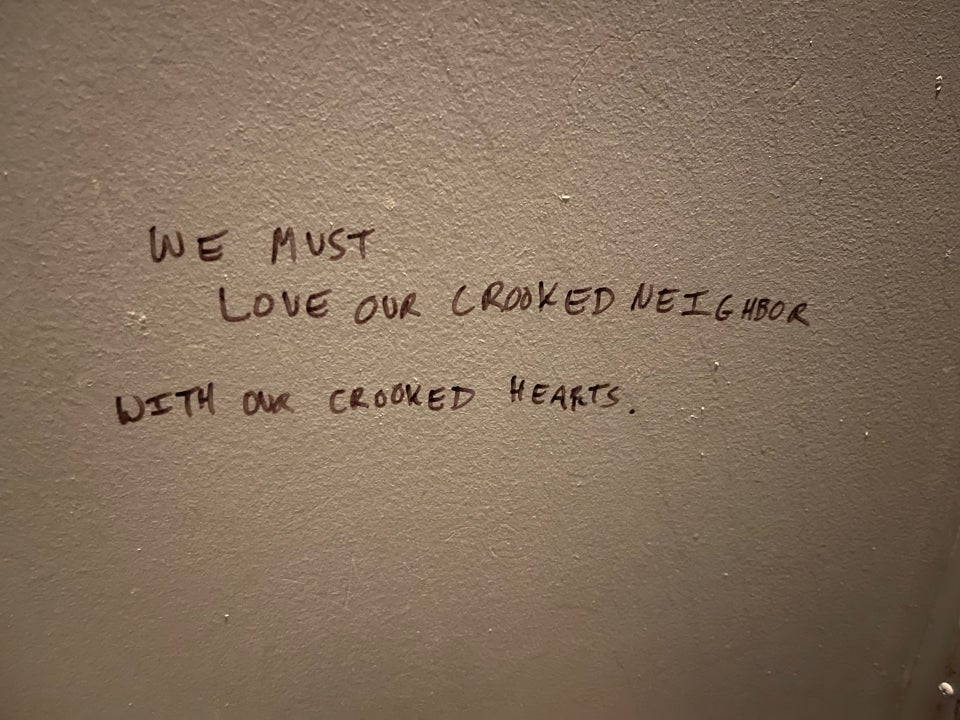 WE MUST
LOVE OUR CROOKED NEIGHBOR
WITH OUR CROOKED HEARTS.